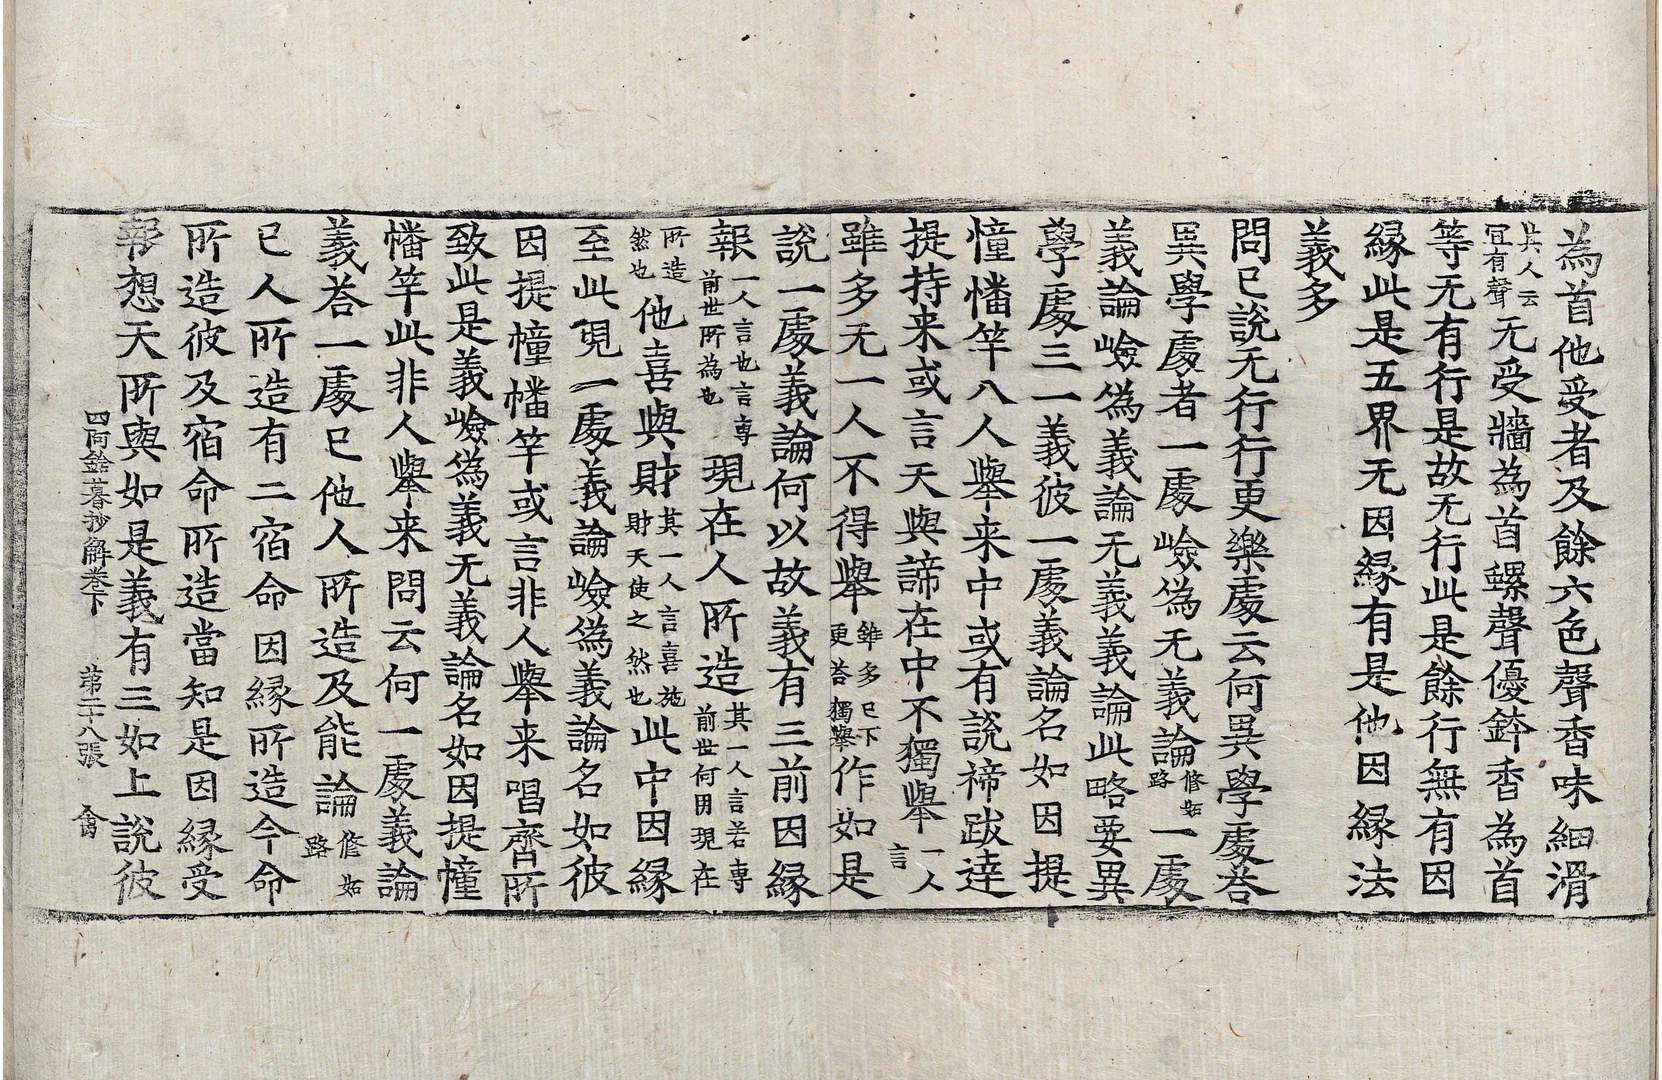 為首他受者及餘六色聲香味細滑
其人云宜有聲无受牆為首螺聲優鉢香為首
等无有行是故无行此是餘行無有因
緣此是五界无因緣有是他因緣法
義多
問已說无行行更樂處云何異學處荅
異學處者一處嶮為无義論修妬路一處
義論嶮為義論无義義論此略要異
學處三一義彼一處義論名如因提
幢幡竿八人轝来中或有說褅跋達
提持来或言天與諦在中不獨轝一人言
雖多无一人不得轝雖多已下更荅獨轝作如是
說一處義論何以故義有三前因緣
報一人言也言專前世所為也現在人所造其一人言若專前世何用現在
所造然也他喜與財其一人言喜施財天使之然也此中因緣
至此現一處義論嶮為義論名如彼
因提幢幡竿或言非人轝来唱齊所
致此是義嶮為義无義論名如因提幢
幡竿此非人轝来問云何一處義論
義荅一處已他人所造及能論修妬路
已人所造有二宿命因緣所造今命
所造彼及宿命所造當知是因緣受
報想天所與如是義有三如上說彼
四阿鋡暮抄解卷下 第二十八張 禽